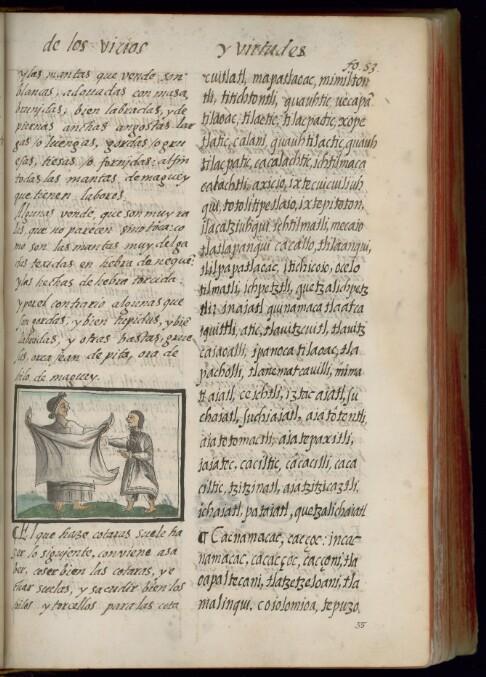 de los vicios y virtudes
fo. 53.
y las mantas que vende son
blancas, adouadas con masa,
bruñidas, bien labradas, y de
piernas anchas angostas lar
gas o luengas, gordas o gru
esas, tiesas o fornidas: al fin
todas las mantas de maguey
que tienen labores.
Algunas vende, que son muy ra
las, que no parecen sino toca: co
mo son las mantas muy delga
das texidas en hebra de nequē
y las hechas de hebra torcida
y por el contrario algunas que
son gordas, y bien tupidas, y biē
labradas, y otras bastas, grue
sas, ora sean de pita, ora de
hilo de maguey.
¶ El que haze cotaras suele ha
zer lo siguiente, conviene a sa
ber, coser bien las cotaras, y e
char suelas, y sacudir bien los
hilos y torcellos para las cota
cuitlatl, mapatlacac, mimilton
tli, titichtontli, quauhtic, uecapā
tilaoac, tilactic, tilacpactic, xope
tlatic, calani, quauhtilactic, quauh
tilacpatic, cacalachtic, ichtilmaca
calachtli, axicio, ixtecuicuiliuh
qui, totolitipetlaio, ixtepitoton,
tlacatziuhqui ichtilmatli, mecaio
tlatlapanqui cacallo, thiltianqui,
tlilpapatlacac, itichicoio, ocelo
tilmatli, ichpetztli, quetzalichpetz
tli: in aiatl quinamaca tlaatca
iquittli, atic, tlauitzcuitl, tlauitz
caiaoalli, ipanoca tilaoac, tla
pacholli, tlanematcauilli, mima
tl aiatl, ce ichtli, iztac aiatl, su
chaiatl, suchiaiatl, aiatotentli,
aiatotomactli, aiatepaxitli,
iaiatec, caciltic, cacacilli, caca
ciltic, tzitzinatl, aiatzitzicaztli,
ichaiatl, pataiatl, quetzalichaiatl
¶ Cacnamacac, cacçoc: in cac
namacac, cacacçoc, cacçoni, tla
oapaltecani, tlatzetzeloani, tla
malinqui. coiolomioa, tepuzo
55